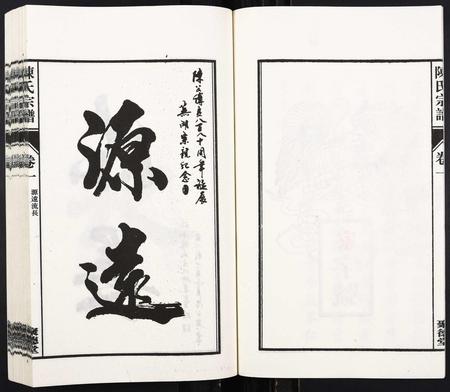 陳氏宗譜
卷一
陳公傅良八百八十周年誕辰
蕪湖宗親紀念
源遠
陳氏宗譜
卷一
源遠流長